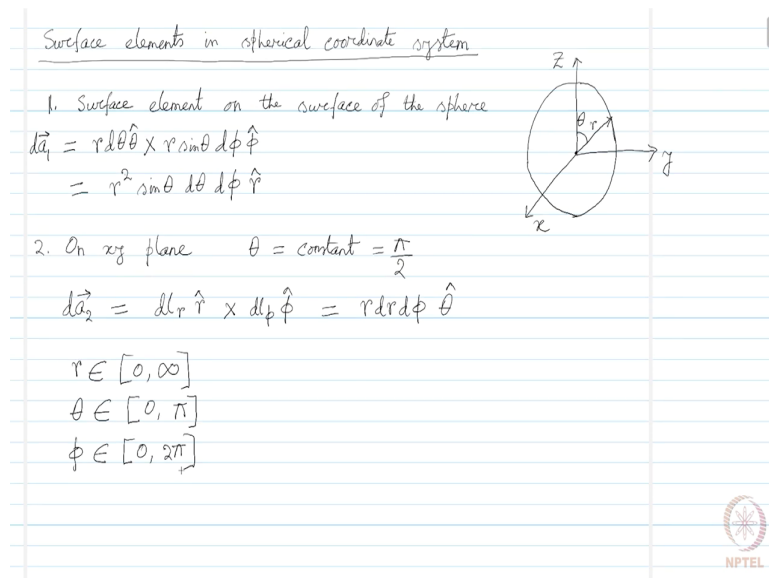 Surface elements in spherical coordinate system
1. Surface element on the surface of the sphere
da⃗₁ = r dθ θ̂ × r sinθ dϕ ϕ̂
= r² sinθ dθ dϕ r̂
z
θ
r
y
x
2. On xy plane θ = constant = π/2
da⃗₂ = dlᵣ r̂ × dlᵩ ϕ̂ = r dr dϕ θ̂
r ∈ [0, ∞]
θ ∈ [0, π]
ϕ ∈ [0, 2π]
NPTEL